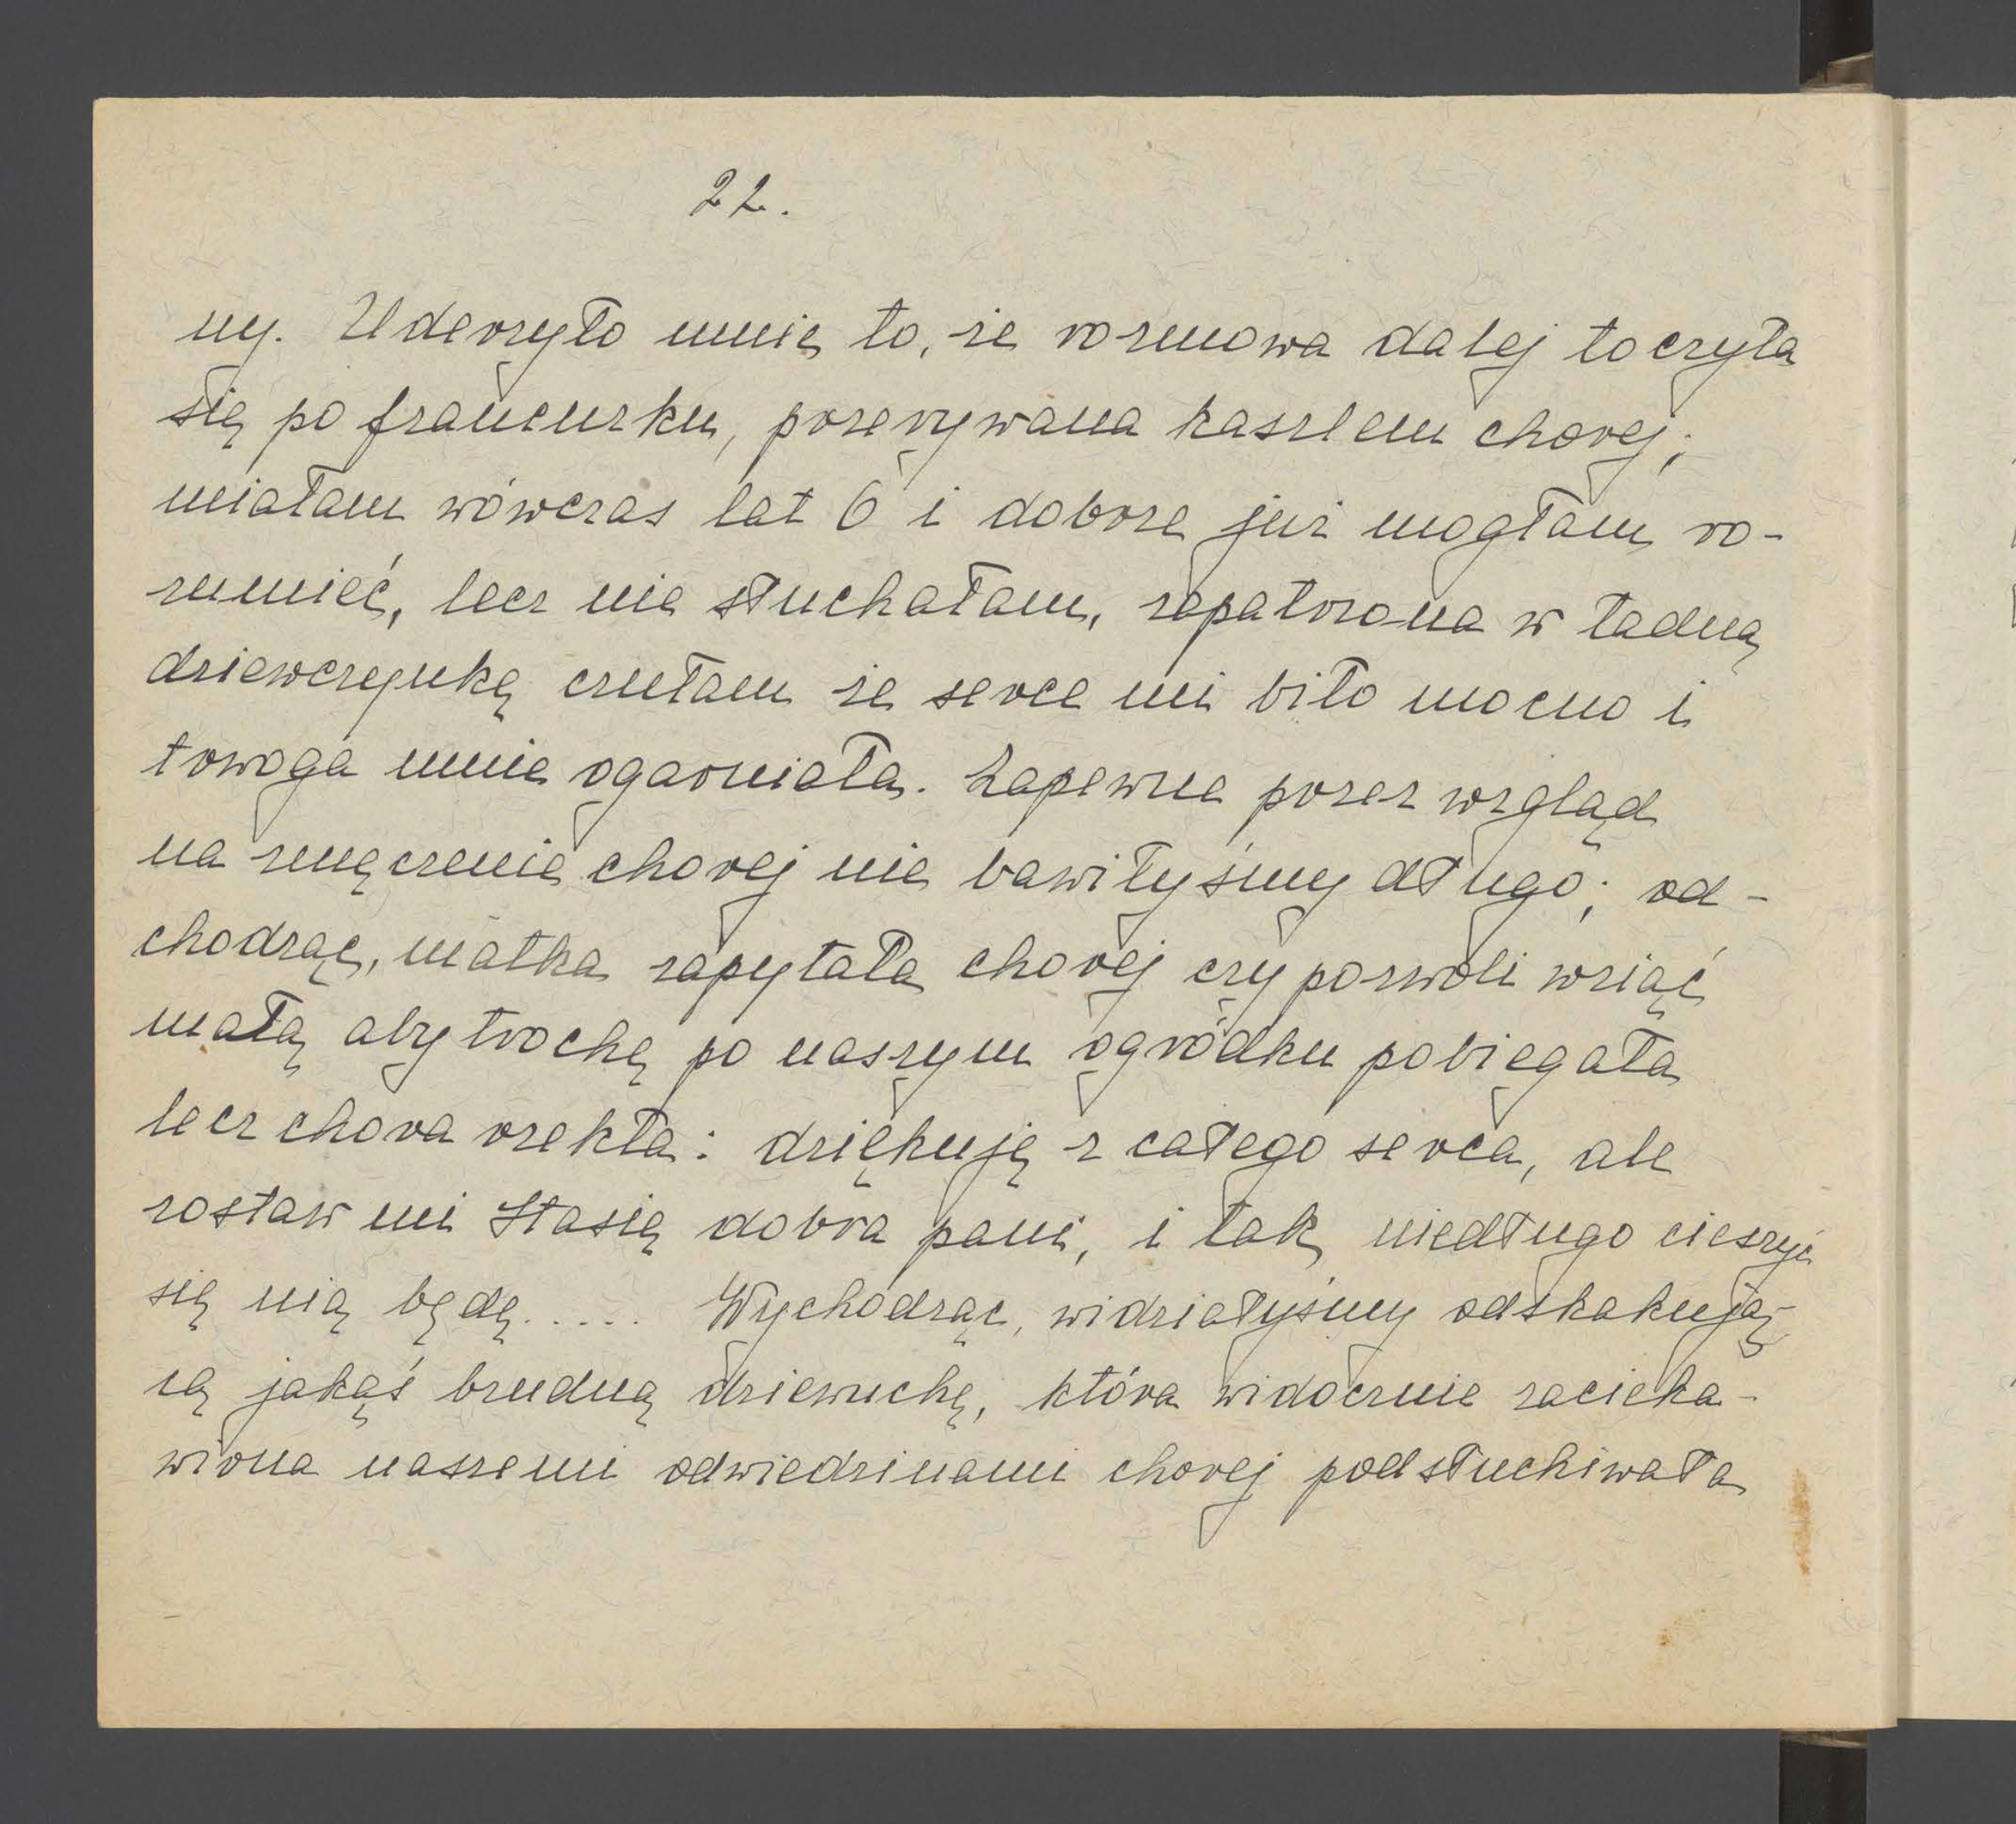 22.
ny. Uderzyło mnie to, że rozmowa dalej toczyła
się po francuzku, przerywana kaszlem chorej;
miałam wówczas lat 6 i dobrze już mogłam ro-
zumieć, lecz nie słuchałam, zapatrzona w ładną
dziewczynkę czułam że serce mi biło mocno i
trwoga mnie ogarniała. Zapewne przez wzgląd
na zmęczenie chorej nie bawiłyśmy długo; od-
chodząc, matka zapytała chorej czy pozwoli wziąć
małą aby trochę po naszym ogródku pobiegała
lecz chora rzekła: dziękuję z całego serca, ale
zostaw mi Stasię dobra pani, i tak niedługo cieszyć
się nią będę..... Wychodząc, widziałyśmy odskakują-
cą jakąś brudną dziewuchę, która widocznie zacieka-
wiona naszemi odwiedzinami chorej podsłuchiwała